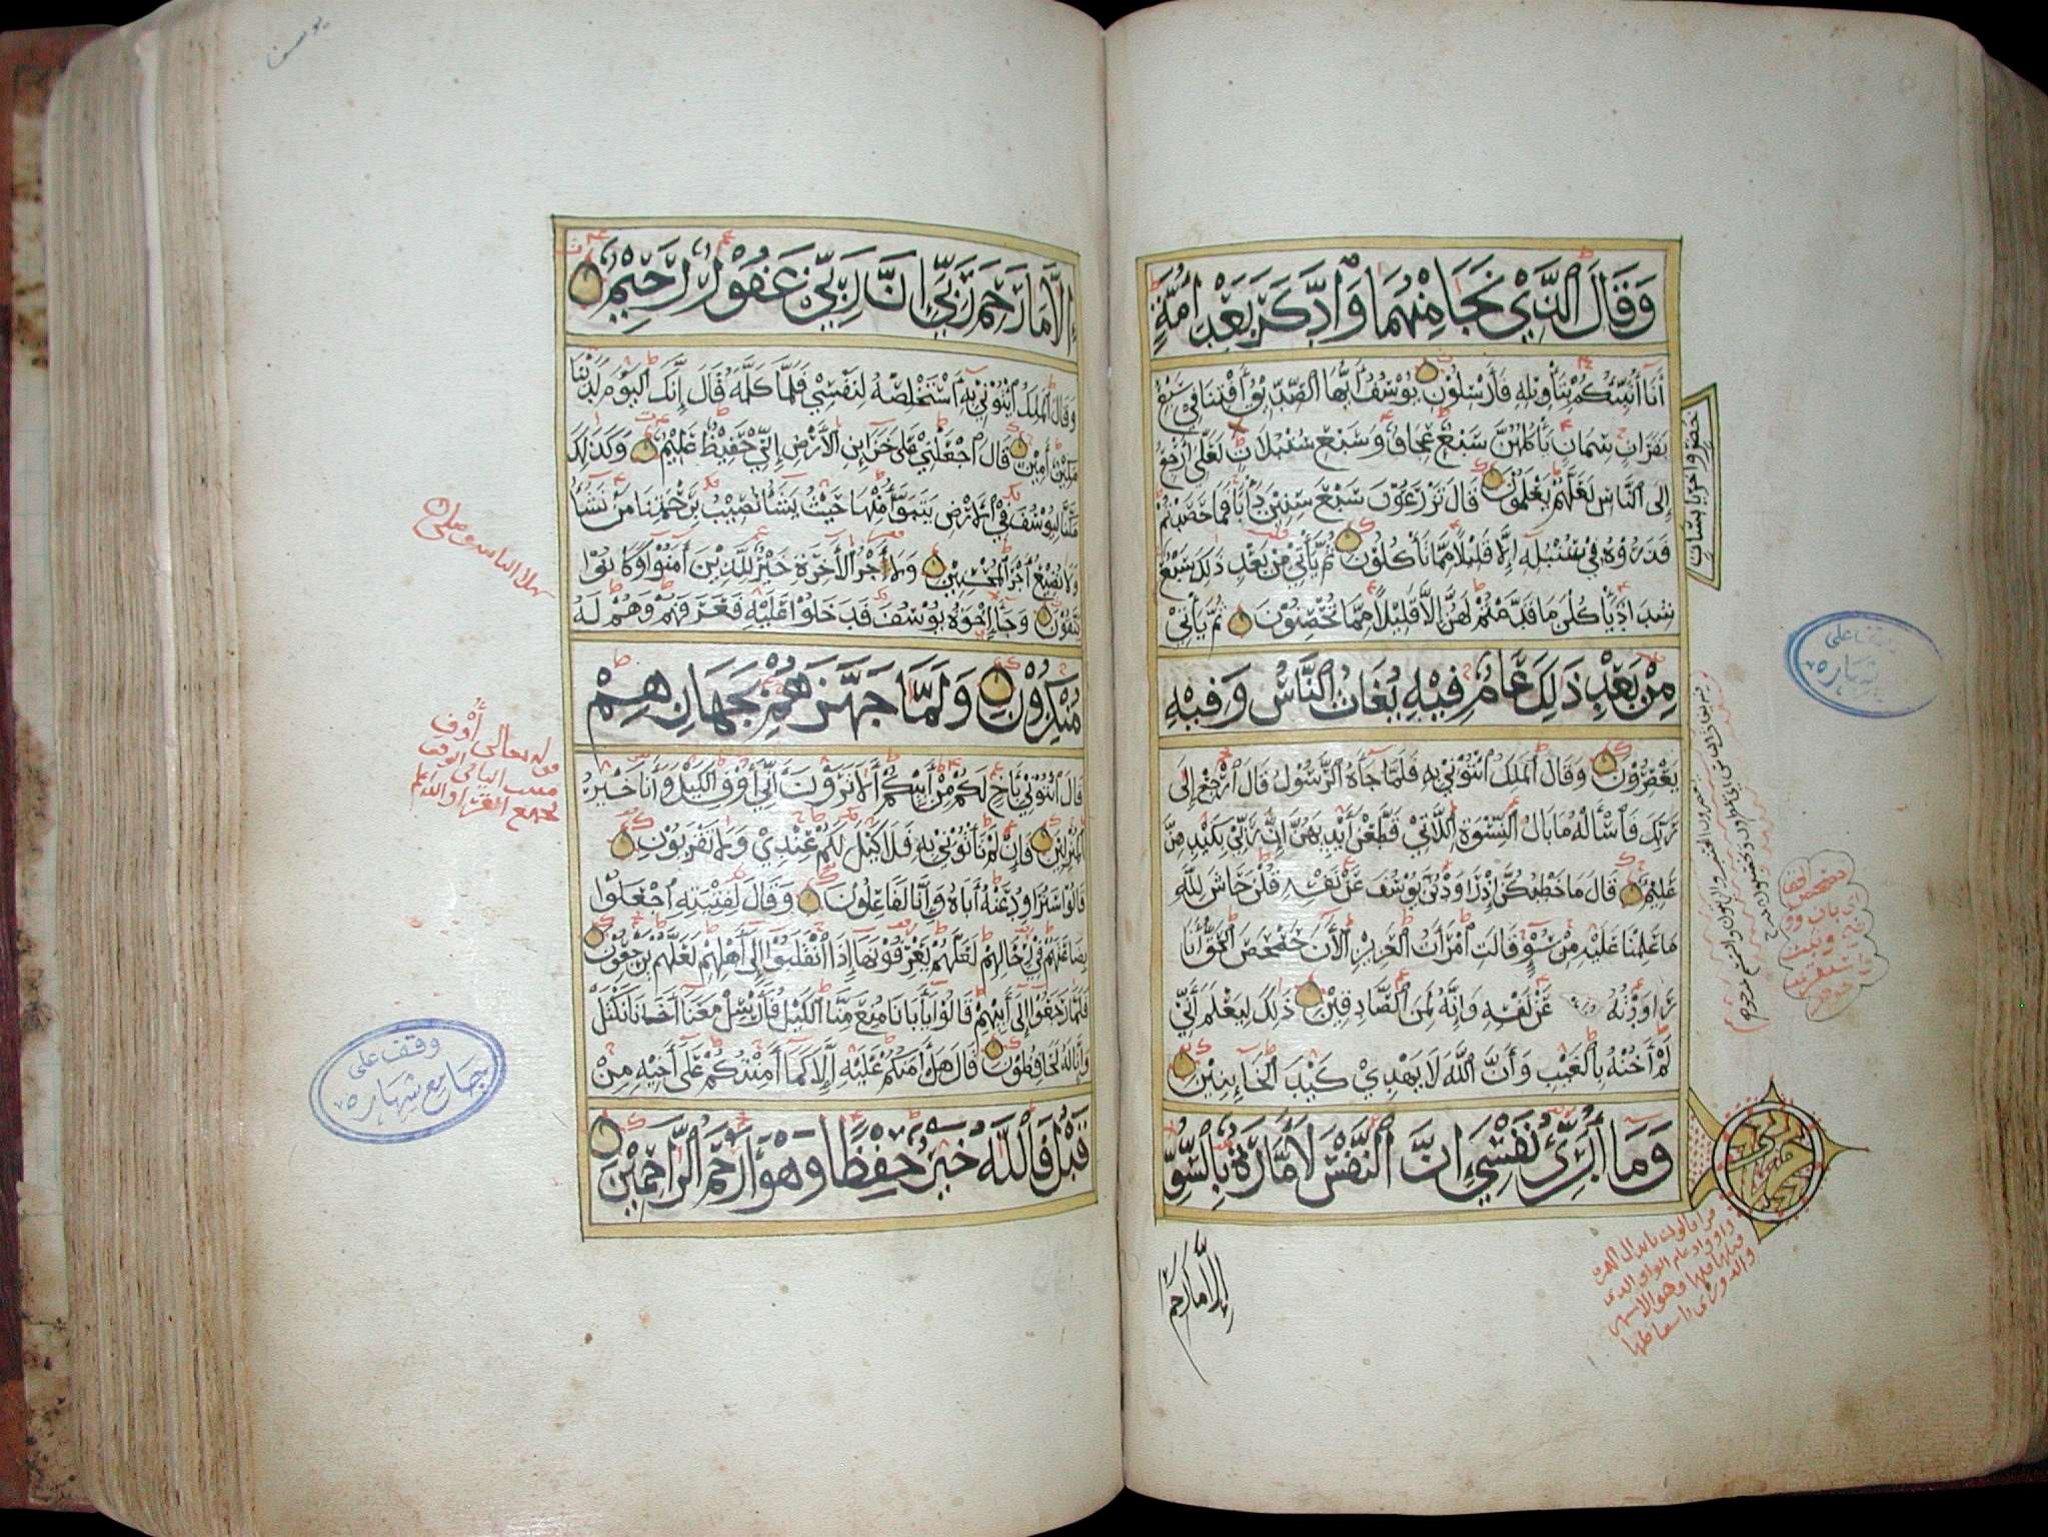 وَقَالَ ٱلَّذِي نَجَا مِنْهُمَا وَٱدَّكَرَ بَعْدَ أُمَّةٍ
أَنَا أُنَبِّئُكُمْ بِتَأْوِيلِهِ فَأَرْسِلُونِ يُوسُفُ أَيُّهَا ٱلصِّدِّيقُ أَفْتِنَا فِي سَبْعِ
بَقَرَاتٍ سِمَانٍ يَأْكُلُهُنَّ سَبْعٌ عِجَافٌ وَسَبْعِ سُنْبُلَاتٍ لَعَلِّي أَرْجِعُ
خُضْرٍ وَأُخَرَ يَابِسَاتٍ
إِلَى ٱلنَّاسِ لَعَلَّهُمْ يَعْلَمُونَ قَالَ تَزْرَعُونَ سَبْعَ سِنِينَ دَأْبًا فَمَا حَصَدْتُمْ
فَذَرُوهُ فِي سُنْبُلِهِ إِلَّا قَلِيلًا مِمَّا تَأْكُلُونَ ثُمَّ يَأْتِي مِنْ بَعْدِ ذَلِكَ سَبْعٌ
شِدَادٌ يَأْكُلْنَ مَا قَدَّمْتُمْ لَهُنَّ إِلَّا قَلِيلًا مِمَّا تُحْصِنُونَ ثُمَّ يَأْتِي
مِنْ بَعْدِ ذَلِكَ عَامٌ فِيهِ يُغَاثُ ٱلنَّاسُ وَفِيهِ
يَعْصِرُونَ وَقَالَ ٱلْمَلِكُ ٱئْتُونِي بِهِ فَلَمَّا جَاءَهُ ٱلرَّسُولُ قَالَ ٱرْجِعْ إِلَى
رَبِّكَ فَاسْأَلْهُ مَا بَالُ ٱلنِّسْوَةِ ٱللَّاتِي قَطَّعْنَ أَيْدِيَهُنَّ إِنَّ رَبِّي بِكَيْدِهِنَّ
عَلِيمٌ قَالَ مَا خَطْبُكُنَّ إِذْ رَاوَدْتُنَّ يُوسُفَ عَنْ نَفْسِهِ قُلْنَ حَاشَ لِلَّهِ
مَا عَلِمْنَا عَلَيْهِ مِنْ سُوءٍ قَالَتِ ٱمْرَأَتُ ٱلْعَزِيزِ ٱلْآنَ حَصْحَصَ ٱلْحَقُّ أَنَا
رَاوَدْتُهُ عَنْ نَفْسِهِ وَإِنَّهُ لَمِنَ ٱلصَّادِقِينَ ذَلِكَ لِيَعْلَمَ أَنِّي
لَمْ أَخُنْهُ بِٱلْغَيْبِ وَأَنَّ ٱللَّهَ لَا يَهْدِي كَيْدَ ٱلْخَائِنِينَ
وَمَا أُبَرِّئُ نَفْسِي إِنَّ ٱلنَّفْسَ لَأَمَّارَةٌ بِٱلسُّوءِ
إِلَّا مَا رَحِمَ
يوسف
إِلَّا مَا رَحِمَ رَبِّي إِنَّ رَبِّي غَفُورٌ رَحِيمٌ
وَقَالَ ٱلْمَلِكُ ٱئْتُونِي بِهِ أَسْتَخْلِصْهُ لِنَفْسِي فَلَمَّا كَلَّمَهُ قَالَ إِنَّكَ ٱلْيَوْمَ لَدَيْنَا
مَكِينٌ أَمِينٌ قَالَ ٱجْعَلْنِي عَلَى خَزَائِنِ ٱلْأَرْضِ إِنِّي حَفِيظٌ عَلِيمٌ وَكَذَلِكَ
مَكَّنَّا لِيُوسُفَ فِي ٱلْأَرْضِ يَتَبَوَّأُ مِنْهَا حَيْثُ يَشَاءُ نُصِيبُ بِرَحْمَتِنَا مَنْ نَشَاءُ
وَلَا نُضِيعُ أَجْرَ ٱلْمُحْسِنِينَ وَلَأَجْرُ ٱلْآخِرَةِ خَيْرٌ لِلَّذِينَ آمَنُوا وَكَانُوا
يَتَّقُونَ وَجَاءَ إِخْوَةُ يُوسُفَ فَدَخَلُوا عَلَيْهِ فَعَرَفَهُمْ وَهُمْ لَهُ
مُنْكِرُونَ وَلَمَّا جَهَّزَهُمْ بِجَهَازِهِمْ
قَالَ ٱئْتُونِي بِأَخٍ لَكُمْ مِنْ أَبِيكُمْ أَلَا تَرَوْنَ أَنِّي أُوفِي ٱلْكَيْلَ وَأَنَا خَيْرُ
ٱلْمُنْزِلِينَ فَإِنْ لَمْ تَأْتُونِي بِهِ فَلَا كَيْلَ لَكُمْ عِنْدِي وَلَا تَقْرَبُونِ
قَالُوا سَنُرَاوِدُ عَنْهُ أَبَاهُ وَإِنَّا لَفَاعِلُونَ وَقَالَ لِفِتْيَتِهِ ٱجْعَلُوا
بِضَاعَتَهُمْ فِي رِحَالِهِمْ لَعَلَّهُمْ يَعْرِفُونَهَا إِذَا ٱنْقَلَبُوا إِلَى أَهْلِهِمْ لَعَلَّهُمْ يَرْجِعُونَ
فَلَمَّا رَجَعُوا إِلَى أَبِيهِمْ قَالُوا يَا أَبَانَا مُنِعَ مِنَّا ٱلْكَيْلُ فَأَرْسِلْ مَعَنَا أَخَانَا نَكْتَلْ
وَإِنَّا لَهُ لَحَافِظُونَ قَالَ هَلْ آمَنُكُمْ عَلَيْهِ إِلَّا كَمَا أَمِنْتُكُمْ عَلَى أَخِيهِ مِنْ
قَبْلُ فَٱللَّهُ خَيْرٌ حِفْظًا وَهُوَ أَرْحَمُ ٱلرَّاحِمِينَ
وقف على
جامع شهاره